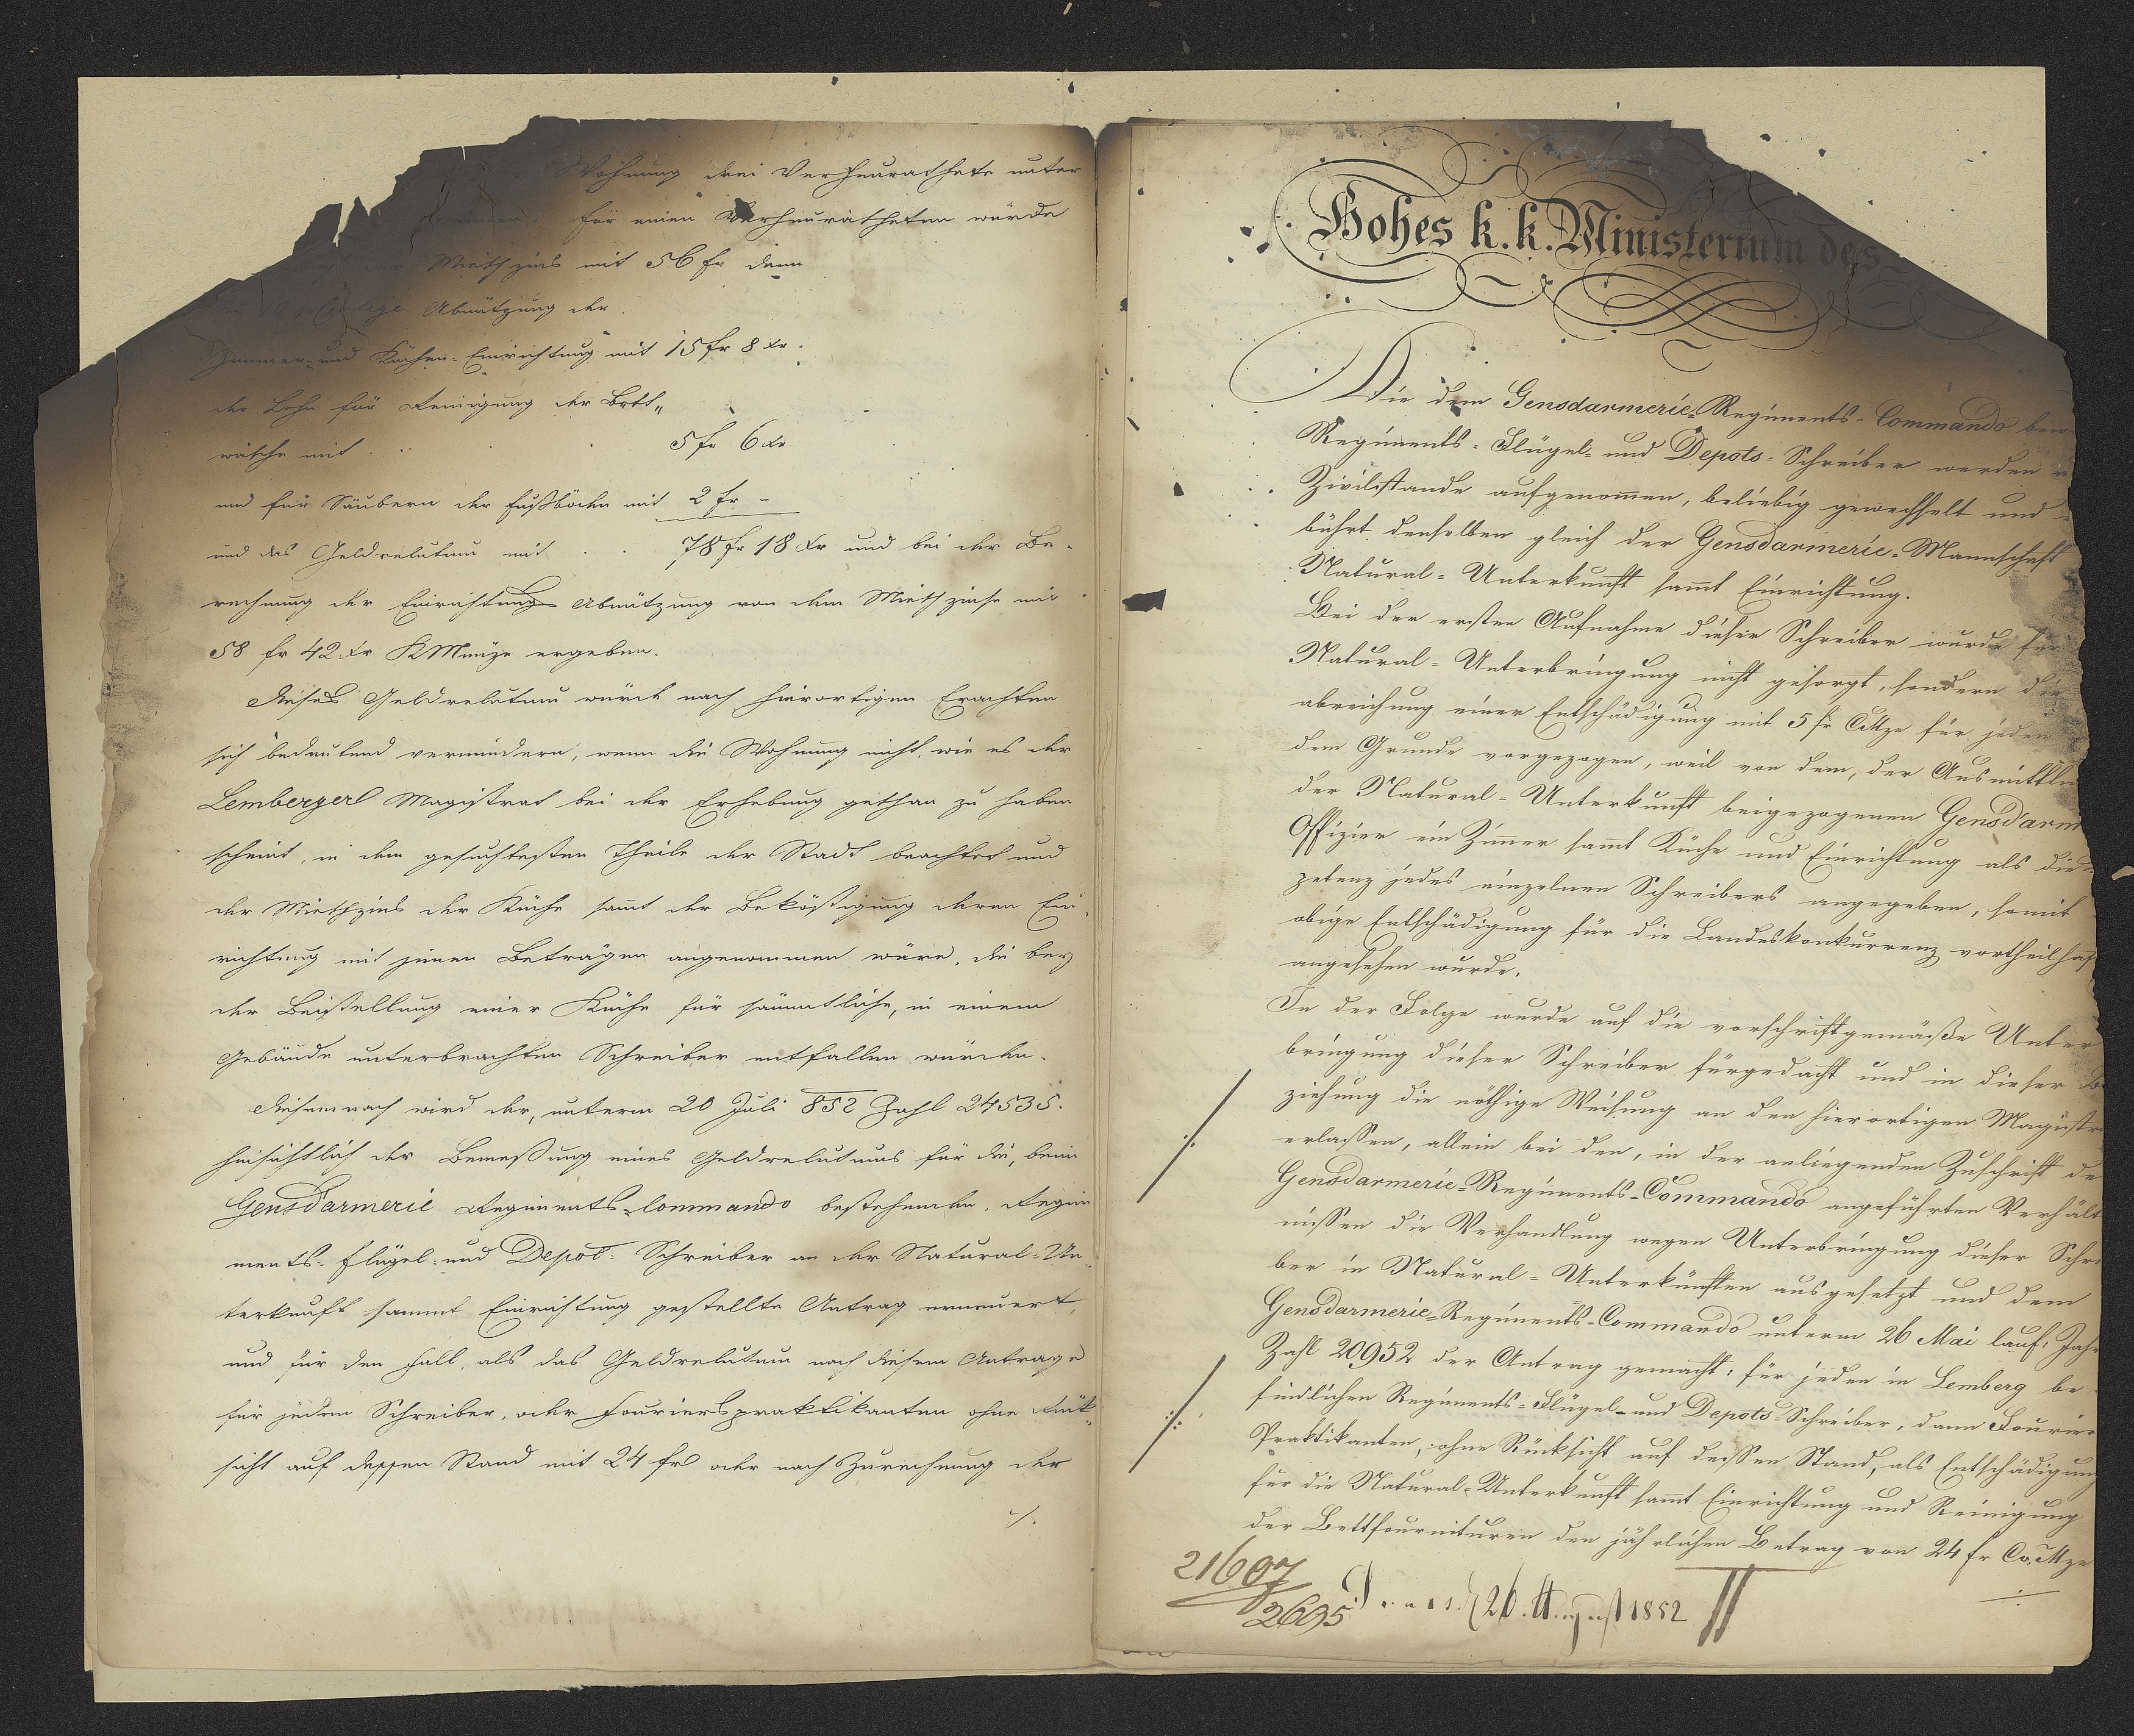 Wohnung drei Verheurathete unter
für einen Verheuratheten würde
der Miethzins mit 56 fr dann
Abnützung der
Zimmer- und Küchen-Einrichtung mit 15 fr 8 xr.
der Lohn für Reinigung der Bett„
wäsche mit . . 5 fr 6 xr
und für Säubern der Fußböden mit 2 fr -
und das Geldrelutum mit . . 78 fr 18 xr und bei der Be-
rechnung der Einrichtungs Abnützung von dem Miethzinse mit
58 fr 42 xr KMünze ergeben.
Dieses Geldrelutum würde nach hierortigen Erachten
sich bedeutend vermindern, wenn die Wohnung nicht, wie es der
Lemberger Magistrat bei der Erhebung gethan zu haben
scheint, in dem gesuchtesten Theile der Stadt beachtet und
der Miethzins der Küche sammt der Beköstigung deren Ein-
richtung mit jenen Beträgen angenommen wäre, die bey
der Beistellung einer Küche für sämmtliche, in einem
Gebäude unterbrachten Schreiber entfallen würden.
Diesemnach wird der, unterm 20 Juli 852 Zahl 24535.
hinsichtlich der Bemeßung eines Geldrelutums für die, beim
Gensd'armerie Regiments-Commando bestehenden, Regi-
ments- Flügel- und Depot- Schreiber an der Natural-Un-
terkunft sammt Einrichtung gestellte Antrag erneuert,
und für den Fall, als das Geldrelutum nach diesem Antrage
für jeden Schreiber, oder Fourierspraktikanten ohne Rük-
sicht auf dessen Stand mit 24 fr oder nach Zurechnung der
./.
Hohes k. k. Ministerium des
Die dem Gensdarmerie-Regiments-Commando
Regiments- Flügel- und Depots-Schreiber werden
Zivilstande aufgenom̄en, beliebig gewechselt und
bührt denselben gleich der Gensdarmerie-Mannschaft
Natural-Unterkunft sam̄t Einrichtung.
Bei der ersten Aufnahme dieser Schreiber wurde für
Natural-Unterbringung nicht gesorgt, sondern die
abreichung einer Entschädigung mit 5 fr CMze für jeden
dem Grunde vorgezogen, weil von dem, der Ausmittlu
der Natural-Unterkunft beigezogenen Gensd'arm
Offizier ein Zim̄er sam̄t Küche und Einrichtung als die
petenz jedes einzelnen Schreibers angegeben, somit
obige Entschädigung für die Landeskonkurrenz vortheilhaf
angesehen wurde.
In der Folge wurde auf die vorschriftgemäße Unter
bringung dieser Schreiber fürgedacht und in dieser Be
ziehung die nöthige Weisung an den hierortigen Magistr
erlassen, allein bei den, in der anliegenden Zuschrift de
Gensdarmerie-Regiments-Commando angeführten Verhält
nissen die Verhandlung wegen Unterbringung dieser Schre
ber in Natural-Unterkünften ausgesetzt und dem
Gensdarmerie-Regiments-Commando unterm 26 Mai lauf: Jahr
Zahl 20952 der Antrag gemacht: für jeden in Lemberg be
findlichen Regiments- Flügel- und Depots-Schreiber, dann Fourier
Praktikanten, ohne Rücksicht auf dessen Stand, als Entschädigung
für die Natural-Unterkunft sam̄t Einrichtung und Reinigung
der Bettfournituren den jährlichen Betrag von 24 fr Co. Mze
21697
2695
26. August 1852